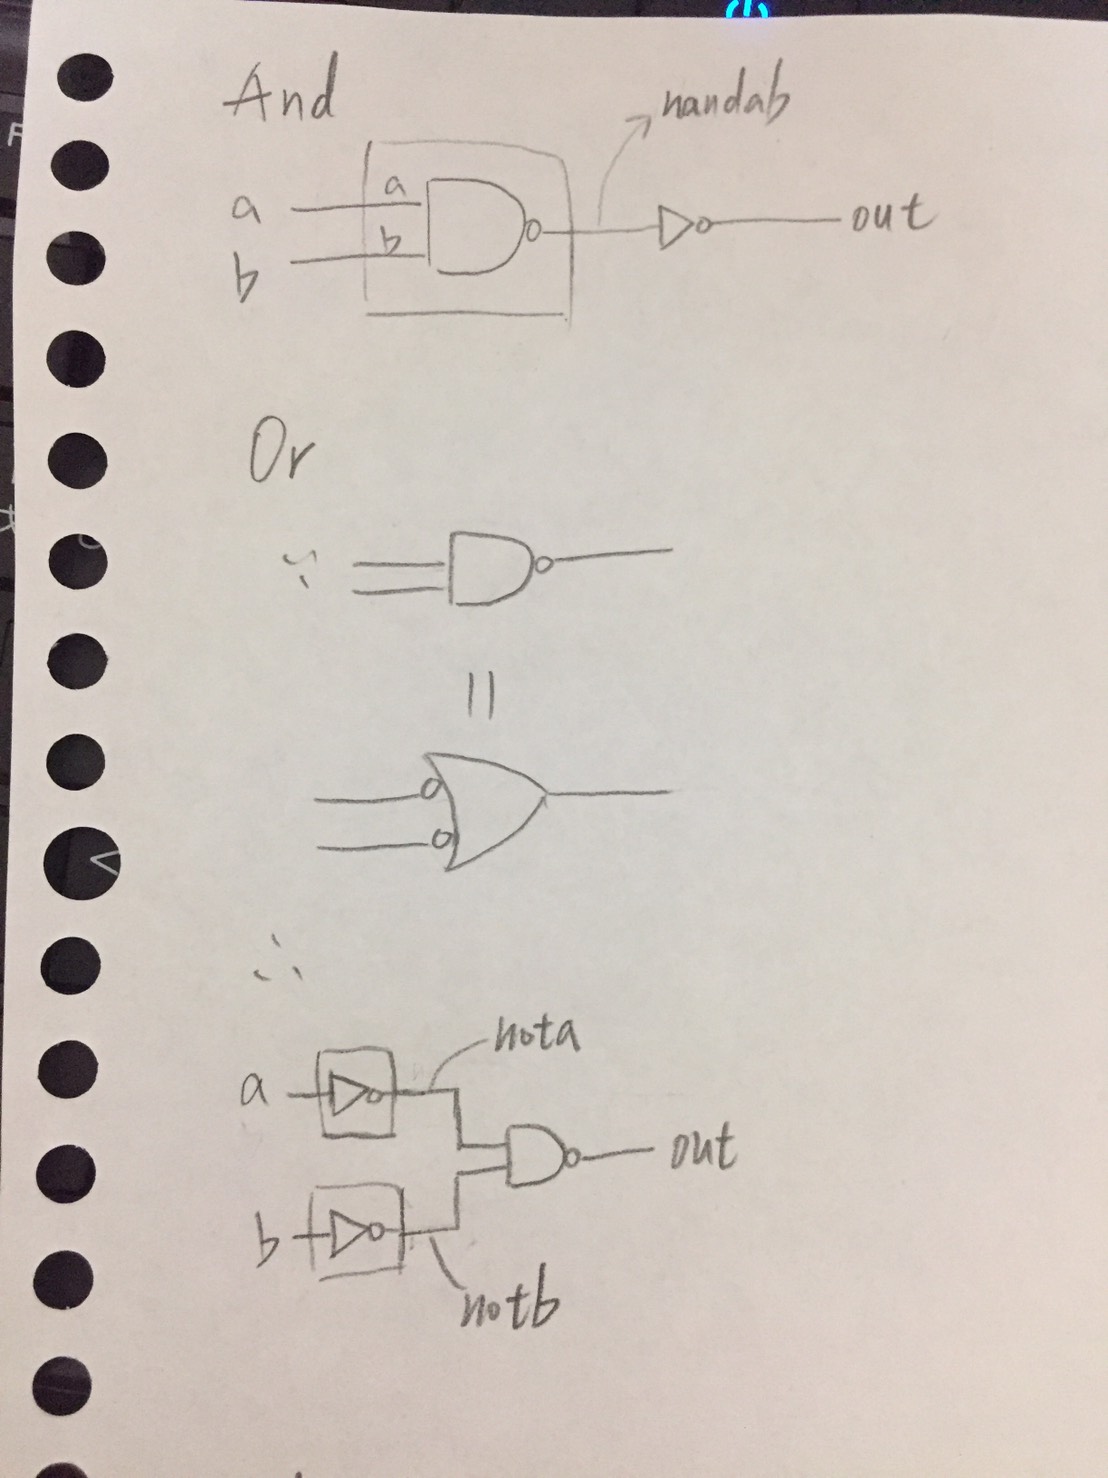 And
nandab
a
a
b
b
out
Or
∵
=
∴
nota
a
out
b
notb